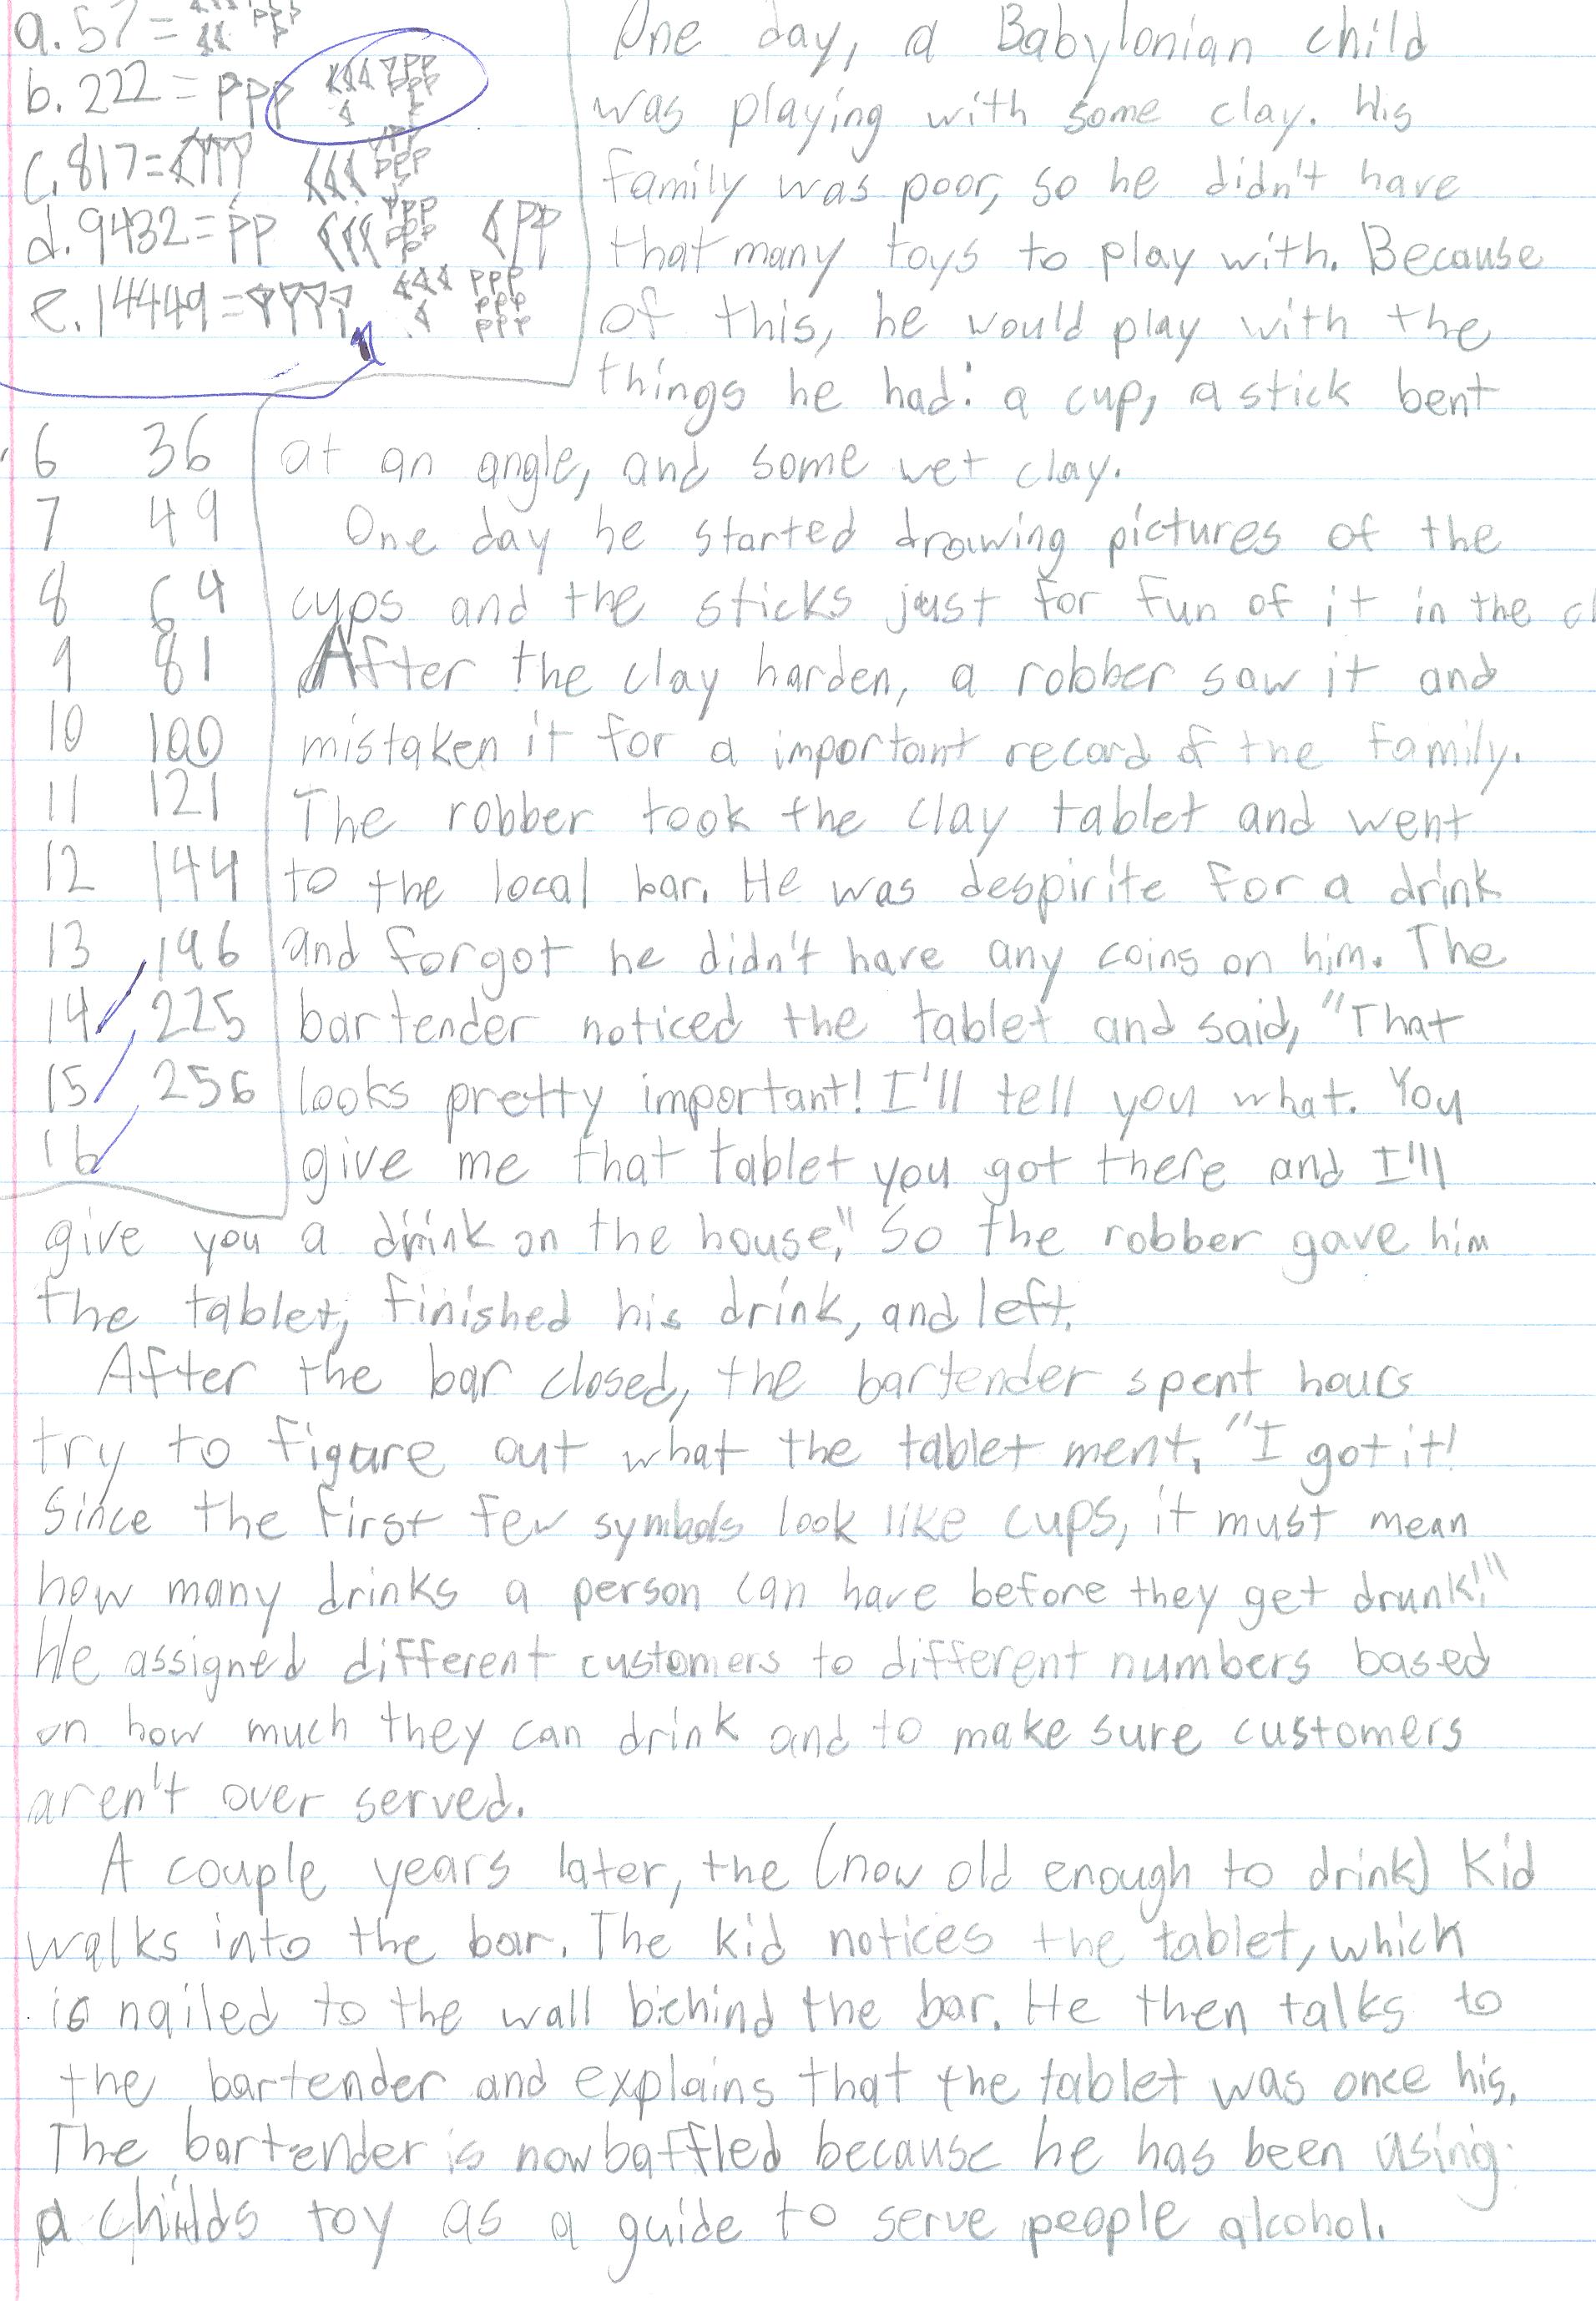 a. 57 =
b. 222 =
c. 817 =
d. 9432 =
e. 14449 =
One day, a Babylonian child
was playing with some clay. His
family was poor, so he didn't have
that many toys to play with. Because
of this, he would play with the
things he had: a cup, a stick bent
at an angle, and some wet clay.
One day he started drawing pictures of the
cups and the sticks just for fun of it in the
After the clay harden, a robber saw it and
mistaken it for a important record of the family.
The robber took the clay tablet and went
to the local bar. He was despirite for a drink
and forgot he didn't have any coins on him. The
bartender noticed the tablet and said, "That
looks pretty important! I'll tell you what. You
give me that tablet you got there and I'll
give you a drink on the house." So the robber gave him
the tablet, finished his drink, and left.
After the bar closed, the bartender spent hours
try to figure out what the tablet ment. "I got it!
Since the first few symbols look like cups, it must mean
how many drinks a person can have before they get drunk!"
He assigned different customers to different numbers based
on how much they can drink and to make sure customers
aren't over served.
A couple years later, the (now old enough to drink) kid
walks into the bar. The kid notices the tablet, which
is nailed to the wall behind the bar. He then talks to
the bartender and explains that the tablet was once his.
The bartender is now baffled because he has been using
a childs toy as a guide to serve people alcohol.
6 36
7 49
8 64
9 81
10 100
11 121
12 144
13 196
14 225
15 256
16